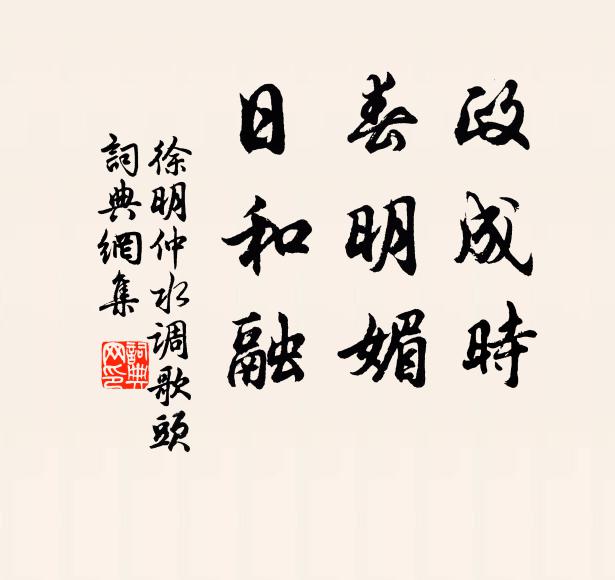 政成時
春明媚
日和融
徐明仲水调歌頭
詞典網集
詞典网印